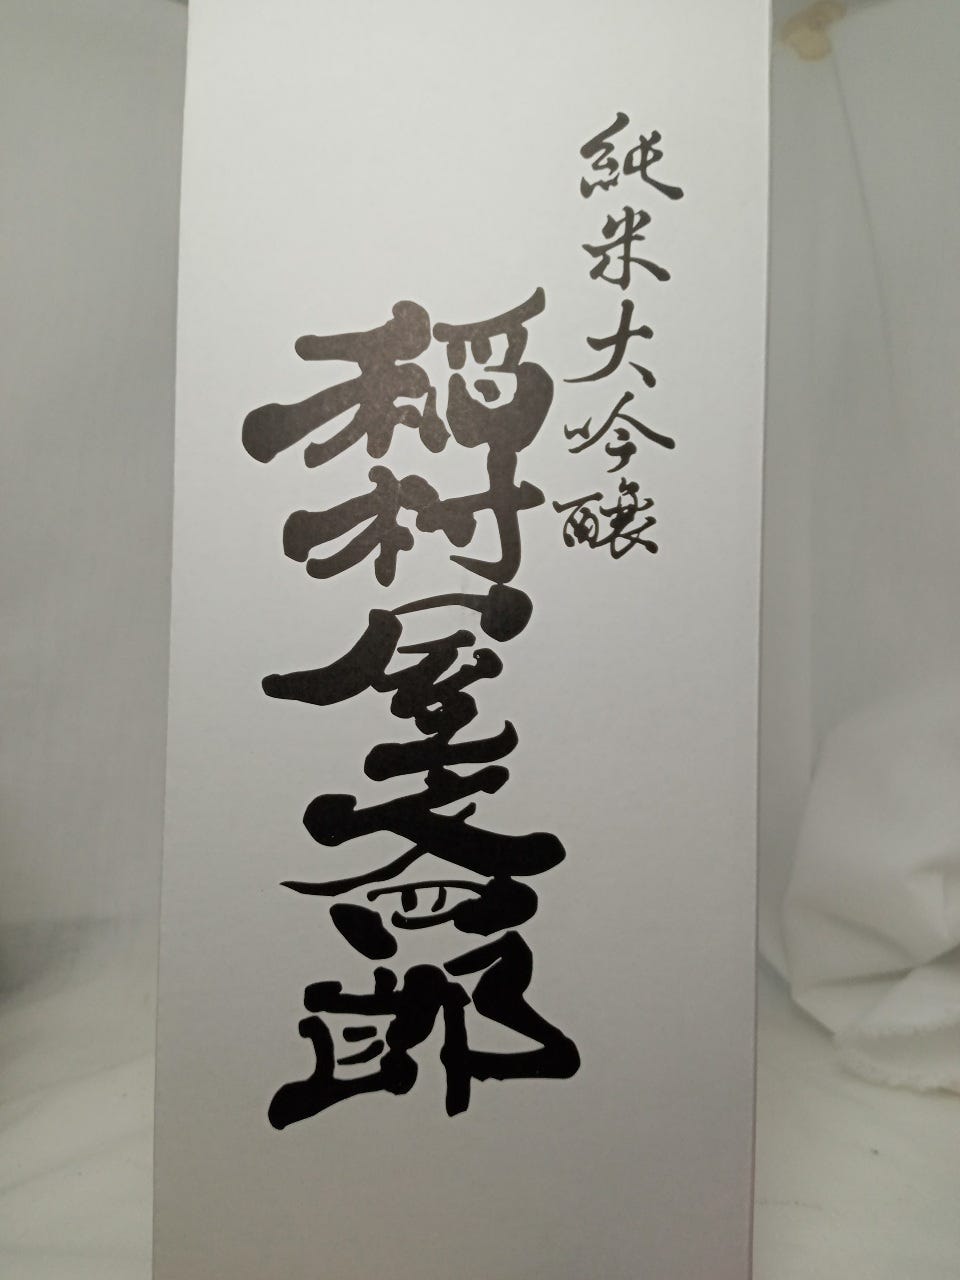 純米大吟醸
稲村屋文四郎